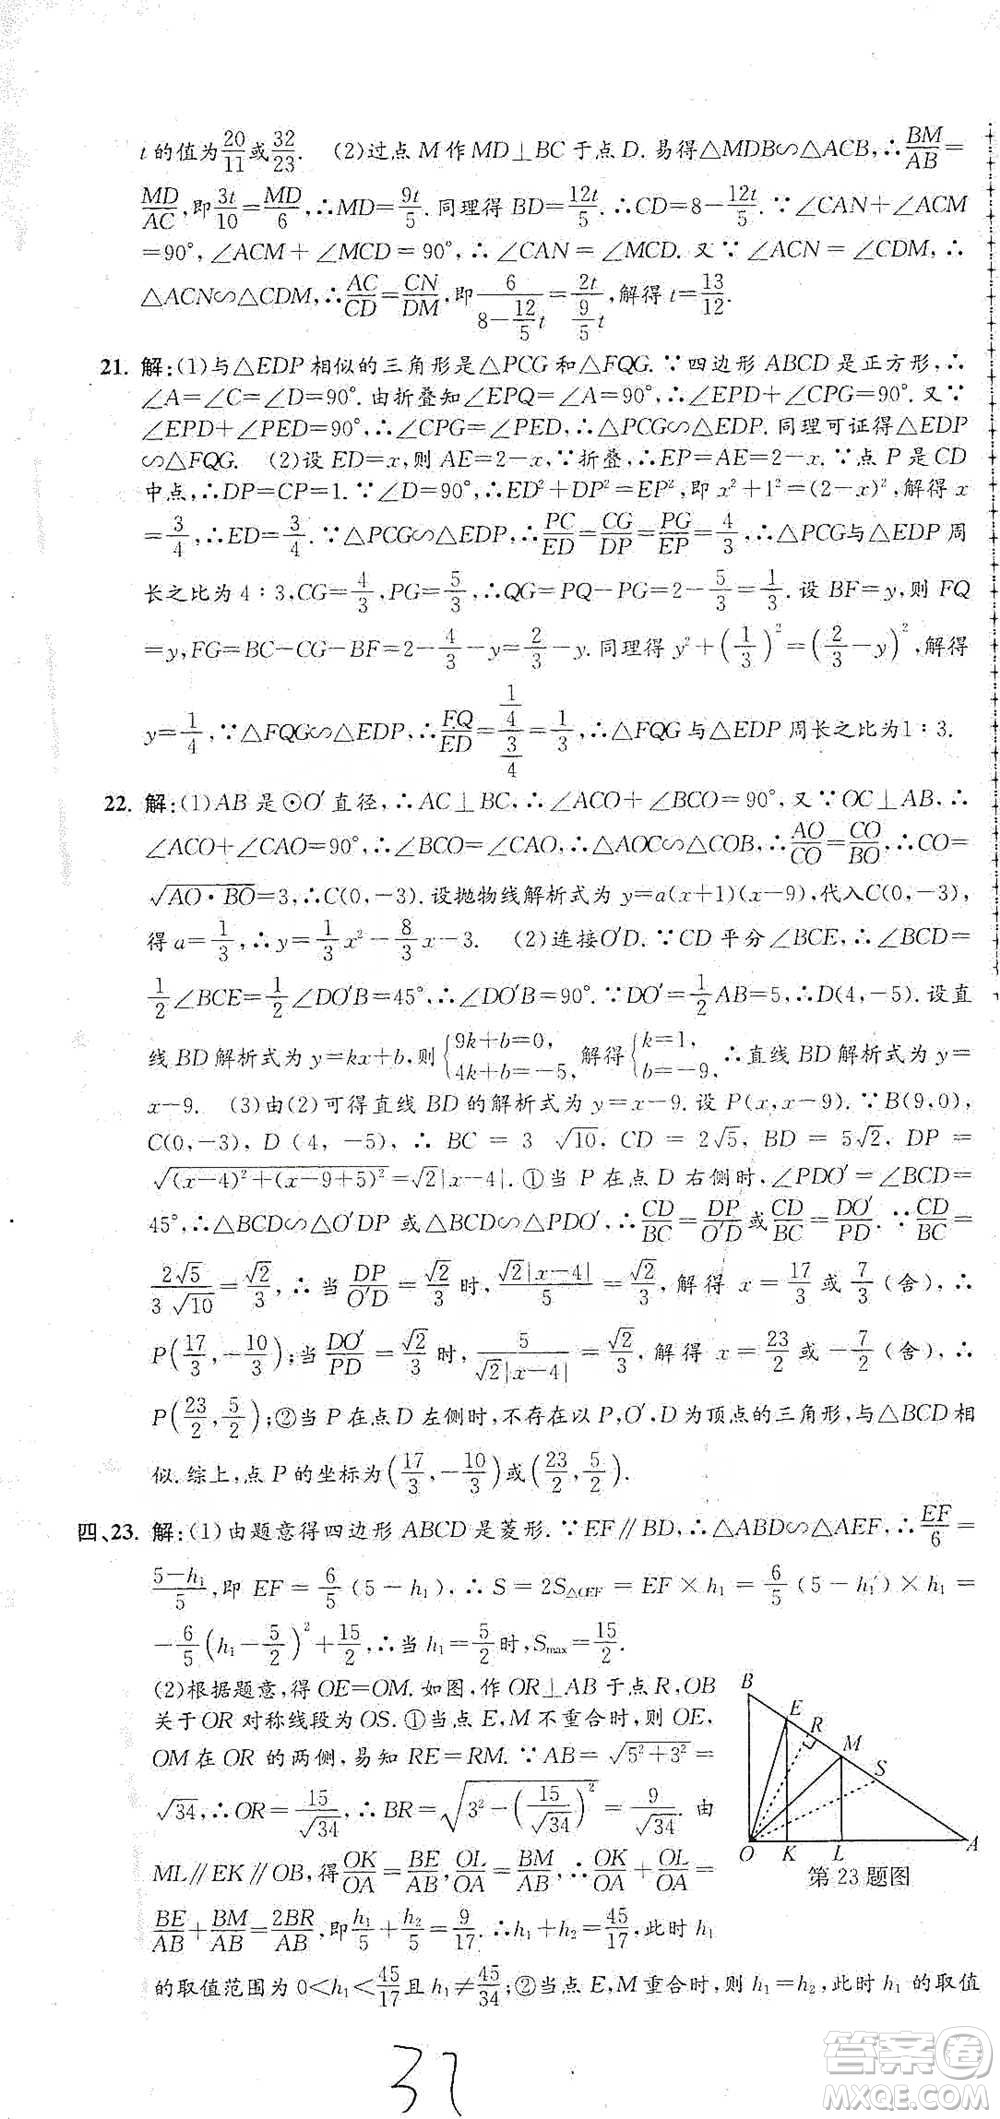 t的值为20/11或32/23. (2)过点M作MD⊥BC于点D.易得△MDB∽△ACB,∴BM/AB=
MD/AC,即3t/10=MD/6,∴MD=9t/5.同理得BD=12t/5.∴CD=8-12t/5.∵∠CAN+∠ACM
=90°,∠ACM+∠MCD=90°,∴∠CAN=∠MCD.又∵∠ACN=∠CDM,∴
△ACN∽△CDM,∴AC/CD=CN/DM,即6/(8-12/5 t)=2t/(9/5 t),解得t=13/12.
21. 解:(1)与△EDP相似的三角形是△PCG和△FQG.∵四边形ABCD是正方形,∴
∠A=∠C=∠D=90°.由折叠知∠EPQ=∠A=90°,∴∠EPD+∠CPG=90°.又∵
∠EPD+∠PED=90°,∴∠CPG=∠PED,∴△PCG∽△EDP.同理可证得△EDP
∽△FQG. (2)设ED=x,则AE=2-x,∵折叠,∴EP=AE=2-x.∵点P是CD
中点,∴DP=CP=1.∵∠D=90°,∴ED²+DP²=EP²,即x²+1²=(2-x)²,解得x
=3/4,∴ED=3/4.∵△PCG∽△EDP,∴PC/ED=CG/DP=PG/EP=4/3,∴△PCG与△EDP周
长之比为4∶3,CG=4/3,PG=5/3,∴QG=PQ-PG=2-5/3=1/3.设BF=y,则FQ
=y,FG=BC-CG-BF=2-4/3-y=2/3-y.同理得y²+(1/3)²=(2/3-y)²,解得
y=1/4,∵△FQG∽△EDP,∴FQ/ED=(1/4)/(3/4)=1/3,∴△FQG与△EDP周长之比为1∶3.
22. 解:(1)AB是⊙O′直径,∴AC⊥BC,∴∠ACO+∠BCO=90°,又∵OC⊥AB,∴
∠ACO+∠CAO=90°,∴∠BCO=∠CAO,∴△AOC∽△COB,∴AO/CO=CO/BO,∴CO=
√(AO·BO)=3,∴C(0,-3).设抛物线解析式为y=a(x+1)(x-9),代入C(0,-3),
得a=1/3,∴y=1/3x²-8/3x-3. (2)连接O′D.∵CD平分∠BCE,∴∠BCD=
1/2∠BCE=1/2∠DO′B=45°,∴∠DO′B=90°.∵DO′=1/2AB=5,∴D(4,-5).设直
线BD解析式为y=kx+b,则{9k+b=0, 4k+b=-5, 解得{k=1, b=-9, ∴直线BD解析式为y=
x-9. (3)由(2)可得直线BD的解析式为y=x-9.设P(x,x-9).∵B(9,0),
C(0,-3),D(4,-5),∴BC=3√10,CD=2√5,BD=5√2,DP=
√((x-4)²+(x-9+5)²)=√2|x-4|.①当P在点D右侧时,∠PDO′=∠BCD=
45°,∴△BCD∽△O′DP或△BCD∽△PDO′,∴CD/BC=DP/O′D或CD/BC=DO′/PD.∵CD/BC=
2√5/3√10=√2/3,∴当DP/O′D=√2/3时,√2|x-4|/5=√2/3,解得x=17/3或7/3(舍),∴
P(17/3,-10/3);当DO′/PD=√2/3时,5/(√2|x-4|)=√2/3,解得x=23/2或-7/2(舍),∴
P(23/2,5/2);②当P在点D左侧时,不存在以P,O′,D为顶点的三角形,与△BCD相
似.综上,点P的坐标为(17/3,-10/3)或(23/2,5/2).
四、23. 解:(1)由题意得四边形ABCD是菱形.∵EF∥BD,∴△ABD∽△AEF,∴EF/6=
(5-h₁)/5,即EF=6/5(5-h₁),∴S=2S△OEF=EF×h₁=6/5(5-h₁)×h₁=
-6/5(h₁-5/2)²+15/2,∴当h₁=5/2时,Smax=15/2.
(2)根据题意,得OE=OM.如图,作OR⊥AB于点R,OB
关于OR对称线段为OS.①当点E,M不重合时,则OE,
OM在OR的两侧,易知RE=RM.∵AB=√(5²+3²)=
√34,∴OR=15/√34,∴BR=√(3²-(15/√34)²)=9/√34.由
ML∥EK∥OB,得OK/OA=BE/AB,OL/OA=BM/AB,∴OK/OA+OL/OA=
BE/AB+BM/AB=2BR/AB,即h₁/5+h₂/5=9/17,∴h₁+h₂=45/17,此时h₁
的取值范围为0<h₁<45/17且h₁≠45/34;②当点E,M重合时,则h₁=h₂,此时h₁的取值
B
E
R
M
S
O K L A
第23题图
37
答案圈
MXQE.COM